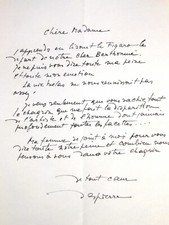 Chère Madame
J'apprends en lisant le Figaro le
départ de notre cher Berthommé
je ne puis vous dire toute ma peine
et toute mon émotion.
La vie nous en nous réunissant pas
assez
Je veux seulement que vous sachiez tout
le chagrin que me fait la disparition
de l'artiste et de l'homme dont j'aimais
profondément toutes les facettes...
Ma femme se joint à moi pour vous
dire toute notre peine et combien nous
pensons à vous dans votre chagrin
De tout cœur